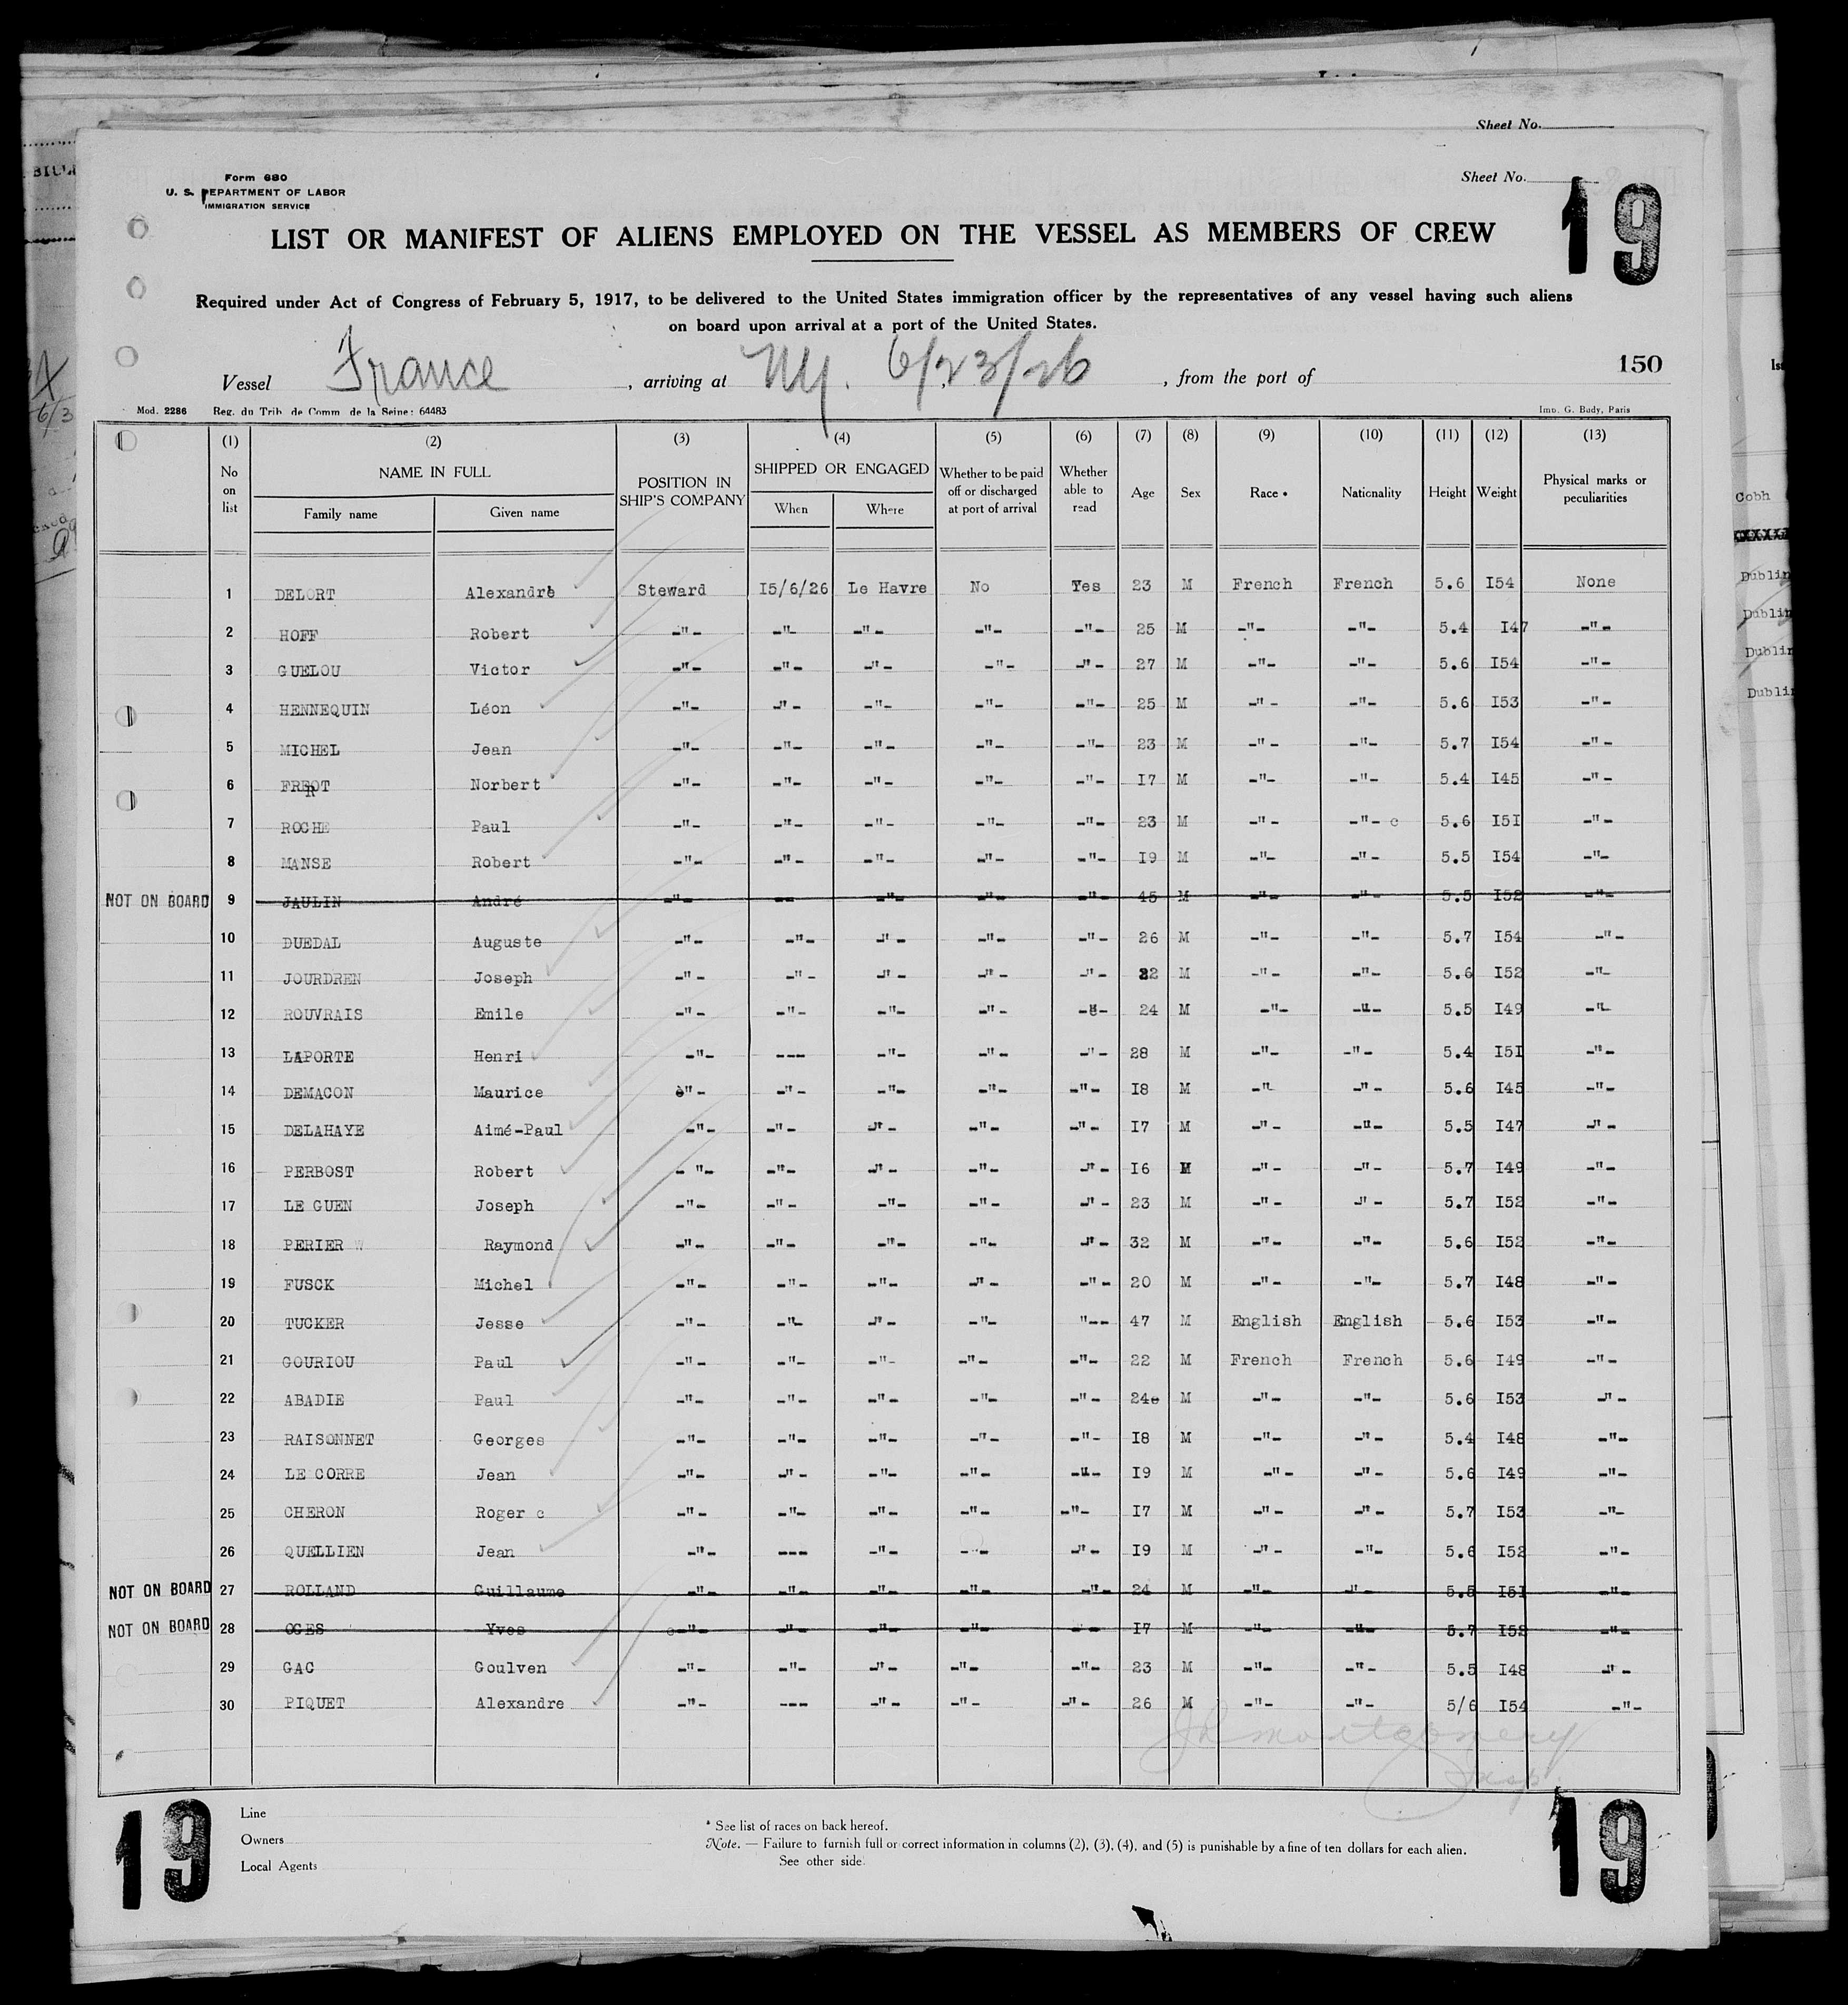 Sheet No.
Form 680
U. S. DEPARTMENT OF LABOR
IMMIGRATION SERVICE
Sheet No. 19
LIST OR MANIFEST OF ALIENS EMPLOYED ON THE VESSEL AS MEMBERS OF CREW
Required under Act of Congress of February 5, 1917, to be delivered to the United States immigration officer by the representatives of any vessel having such aliens
on board upon arrival at a port of the United States.
150
Vessel France, arriving at NY. 6/23/26, from the port of
Mod. 2286 Reg. du Trib. de Comm. de la Seine: 64483 Imp. G. Bady, Paris
(1) (2) (3) (4) (5) (6) (7) (8) (9) (10) (11) (12) (13)
No on list NAME IN FULL Family name Given name POSITION IN SHIP'S COMPANY SHIPPED OR ENGAGED When Where Whether to be paid off or discharged at port of arrival Whether able to read Age Sex Race * Nationality Height Weight Physical marks or peculiarities
1 DELORT Alexandre Steward I5/6/26 Le Havre No Yes 23 M French French 5.6 I54 None
2 HOFF Robert -"- -"- -"- -"- -"- 25 M -"- -"- 5.4 I47 -"-
3 GUELOU Victor -"- -"- -"- -"- -"- 27 M -"- -"- 5.6 I54 -"-
4 HENNEQUIN Léon -"- -"- -"- -"- -"- 25 M -"- -"- 5.6 I53 -"-
5 MICHEL Jean -"- -"- -"- -"- -"- 23 M -"- -"- 5.7 I54 -"-
6 FREROT Norbert -"- -"- -"- -"- -"- I7 M -"- -"- 5.4 I45 -"-
7 ROCHE Paul -"- -"- -"- -"- -"- 23 M -"- -"- c 5.6 I5I -"-
8 MANSE Robert -"- -"- -"- -"- -"- I9 M -"- -"- 5.5 I54 -"-
NOT ON BOARD 9 JAULIN André -"- -- -"- -"- -"- 45 M -"- -"- 5.5 I52 -"-
10 DUEDAL Auguste -"- -"- -"- -"- -"- 26 M -"- -"- 5.7 I54 -"-
11 JOURDREN Joseph -"- -"- -"- -"- -"- 22 M -"- -"- 5.6 I52 -"-
12 ROUVRAIS Emile -"- -"- -"- -"- -"- 24 M -"- -"- 5.5 I49 -"-
13 LAPORTE Henri -"- --- -"- -"- -"- 28 M -"- -"- 5.4 I5I -"-
14 DEMACON Maurice -"- -"- -"- -"- -"- I8 M -"- -"- 5.6 I45 -"-
15 DELAHAYE Aimé-Paul -"- -"- -"- -"- -"- I7 M -"- -"- 5.5 I47 -"-
16 PERBOST Robert -"- -"- -"- -"- -"- I6 M -"- -"- 5.7 I49 -"-
17 LE GUEN Joseph -"- -"- -"- -"- -"- 23 M -"- -"- 5.7 I52 -"-
18 PERIER Raymond -"- -"- -"- -"- -"- 32 M -"- -"- 5.6 I52 -"-
19 FUSCK Michel -"- -"- -"- -"- -"- 20 M -"- -"- 5.7 I48 -"-
20 TUCKER Jesse -"- -"- -"- -"- "-- 47 M English English 5.6 I53 -"-
21 GOURIOU Paul -"- -"- -"- -"- -"- 22 M French French 5.6 I49 -"-
22 ABADIE Paul -"- -"- -"- -"- -"- 24e M -"- -"- 5.6 I53 -"-
23 RAISONNET Georges -"- -"- -"- -"- -"- I8 M -"- -"- 5.4 I48 -"-
24 LE CORRE Jean -"- -"- -"- -"- -"- I9 M -"- -"- 5.6 I49 -"-
25 CHERON Roger c -"- -"- -"- -"- -"- I7 M -"- -"- 5.7 I53 -"-
26 QUELLIEN Jean -"- --- -"- -"- -"- I9 M -"- -"- 5.6 I52 -"-
NOT ON BOARD 27 ROLLAND Guillaume -"- -"- -"- -"- -"- 24 M -"- -"- 5.5 I5I -"-
NOT ON BOARD 28 OGES Yves -"- -"- -"- -"- -"- I7 M -"- -"- 5.7 I52 -"-
29 GAC Goulven -"- -"- -"- -"- -"- 23 M -"- -"- 5.5 I48 -"-
30 PIQUET Alexandre -"- --- -"- -"- -"- 26 M -"- -"- 5/6 I54 -"-
Montgomery
Insp.
19
19
Line
Owners
Local Agents
* See list of races on back hereof.
Note. — Failure to furnish full or correct information in columns (2), (3), (4), and (5) is punishable by a fine of ten dollars for each alien.
See other side.
Cobh
Dublin
Dublin
Dublin
Dublin